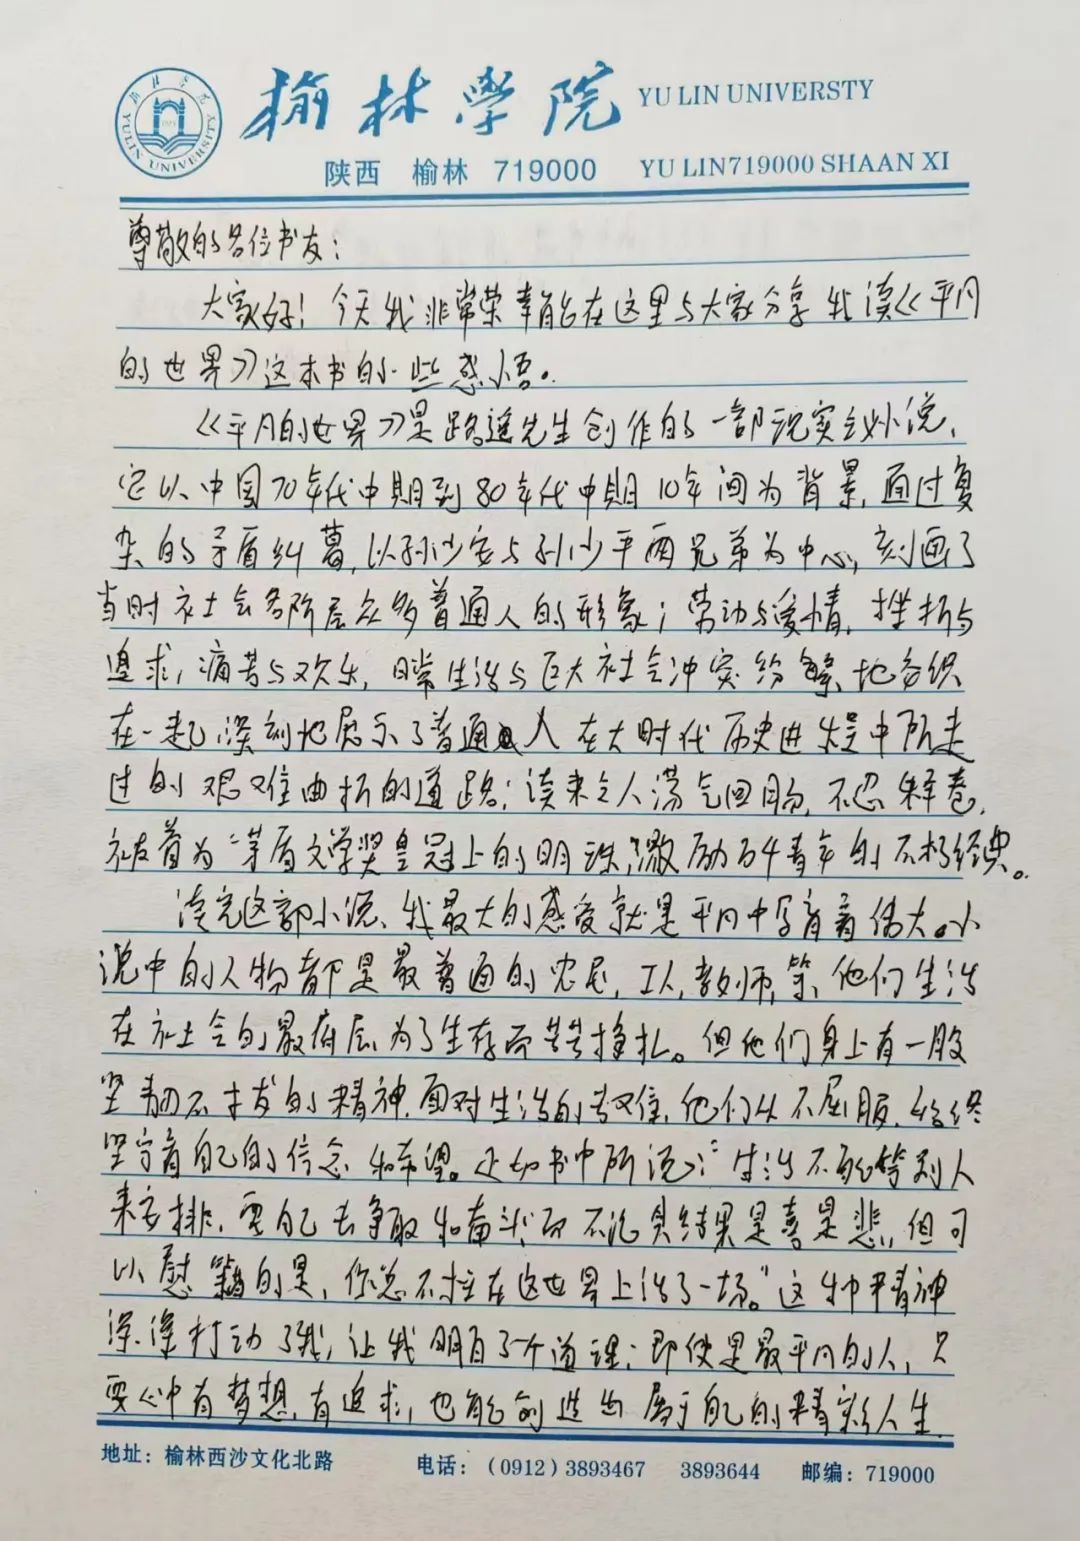 榆林学院 YU LIN UNIVERSTY
榆林学院
YULIN UNIVERSITY
陕西 榆林 719000 YU LIN719000 SHAAN XI
尊敬的各位书友：
大家好！今天我非常荣幸能在这里与大家分享我读《平凡
的世界》这本书的一些感悟。
《平凡的世界》是路遥先生创作的一部现实主义小说，
它以中国70年代中期到80年代中期10年间为背景，通过复
杂的矛盾纠葛，以孙少安与孙少平两兄弟为中心，刻画了
当时社会各阶层众多普通人的形象；劳动与爱情，挫折与
追求，痛苦与欢乐，日常生活与巨大社会冲突纷繁地交织
在一起，深刻地展示了普通人在大时代历史进程中所走
过的艰难曲折的道路；读来令人荡气回肠，不忍释卷，
被誉为“茅盾文学奖皇冠上的明珠，激励万千青年的不朽经典。
读完这部小说，我最大的感受就是平凡中孕育着伟大。小
说中的人物都是最普通的农民，工人，教师，等，他们生活
在社会的最底层，为了生存而苦苦挣扎。但他们身上有一股
坚韧不拔的精神，面对生活的艰难，他们从不屈服，始终
坚守着自己的信念和希望。正如书中所说：“生活不能等别人
来安排，要自己去争取和奋斗，而不论其结果是喜是悲，但可
以慰籍的是，你总不枉在这世界上活了一场。”这种精神
深深打动了我，让我明白了一个道理：即使是最平凡的人，只
要心中有梦想，有追求，也能创造出属于自己的精彩人生。
地址：榆林西沙文化北路 电话：(0912)3893467 3893644 邮编：719000